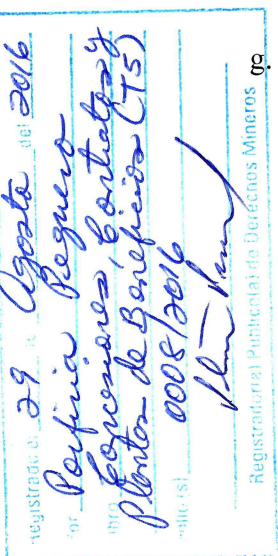 Registrado el 29 Agosto del 2016
por Porfiria Reguero
libro Concesiones, Contratos y
Plantas de Beneficios (T5)
folio(s) 0008/2016
Registrador(a) Público(a) de Derechos Mineros